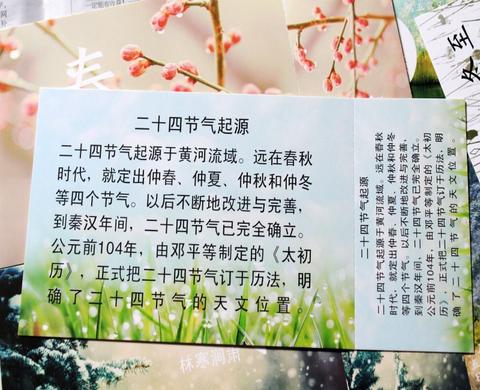 春
冬至
二十四节气起源
二十四节气起源于黄河流域。远在春秋
时代，就定出仲春、仲夏、仲秋和仲冬
等四个节气。以后不断地改进与完善，
到秦汉年间，二十四节气已完全确立。
公元前104年，由邓平等制定的《太初
历》，正式把二十四节气订于历法，明
确了二十四节气的天文位置。
二十四节气起源
二十四节气起源于黄河流域。远在春秋
时代，就定出仲春、仲夏、仲秋和仲冬
等四个节气。以后不断地改进与完善，
到秦汉年间，二十四节气已完全确立。
公元前104年，由邓平等制定的《太初
历》，正式把二十四节气订于历法，明
确了二十四节气的天文位置。
林寒涧肃